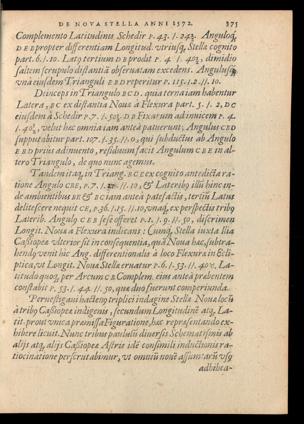 DE NOVA STELLA ANNI 1572. 375
Complemento Latitudinis Schedir p. 43. ſ. 242. Anguloq́;
DEB propter differentiam Longitud. vtriuſq; Stellæ cognito
part. 6. ſ. 10. Latq tertium DE prodit P. 4 ſ. 40 dimidio
ſaltem ſcrupulo diſtantiâ obſeruatam excedens. Anguluſq́;
vnà eiuſdem Trianguli EBD reperitur P. 115. ſ. 2. ſſ. 10.
Deinceps in Triangulo BCD. quia terna iam habentur
Latera, BC ex diſtantia Nouæ à Flexura part. 5. ſ. 2, DC
eiuſdem à Schedir P. 7. ſ. DE Fixarum ad inuicem P. 4.
ſ. 40, velut hæc omnia iam anteà patuerunt; Angulus CBD
ſupputabitur part. 107. ſ. 33. ſſ. 0, qui ſubductus ab Angulo
EBD prius adinuento, reſiduum facit Angulum CBE in al-
tero Triangulo, de quo nunc agemus.
Tandem itaq́; in Triang. BCE ex cognito antedicta ra-
tione Angulo CBE, P. 7. ſ. ſſ. 10, & Lateribꝰ illũ hinc in-
de ambientibus BE & BC iam anteà patefactis, tertiũ Latus
deliteſcere nequit CE, P. 36. ſ. 15. ſſ. 10, vnaq́; ex perſpectis tribꝰ
Laterib. Anglꝰ CEB ſeſe offeret P. 1. ſ. 9. ſſ. 50, diſcrimen
Longit. Nouæ à Flexura indicans: Cumq́; Stella iuxta Ilia
Caſſiopeæ vlterior ſit in conſequentia, quã Noua hæc, ſubtra-
hendꝰ venit hic Ang. differentialis à loco Flexuræ in Ecli-
ptica, vt Longit. Nouæ Stellæ eruatur P. 6. ſ. 53. ſſ. 40 ♉. La-
titudo quoq́; per Arcum CE Complem. eius anteà præbentem
conſtabit P. 53. ſ. 44. ſſ. 50, quæ duo fuerunt comperiunda.
Peruestigaui hactenꝰ triplici indagine Stellæ Nouæ locũ
à tribꝰ Caſſiopeæ indigenis, ſecundum Longitudinẽ atq́; La-
tit. prout vnica præmiſſa Figuratione, hæc repræſentando ex-
hibere licuit. Nunc tribus paululũ diuerſis Schematiſmis ab
alijs atq́; alijs Caſſiopeæ Aſtris idẽ conſimili inductionis ra-
tiocinatione perſcrutabimur, vt omniũ nouẽ aſſumtarũ vſꝰ
adhibea-